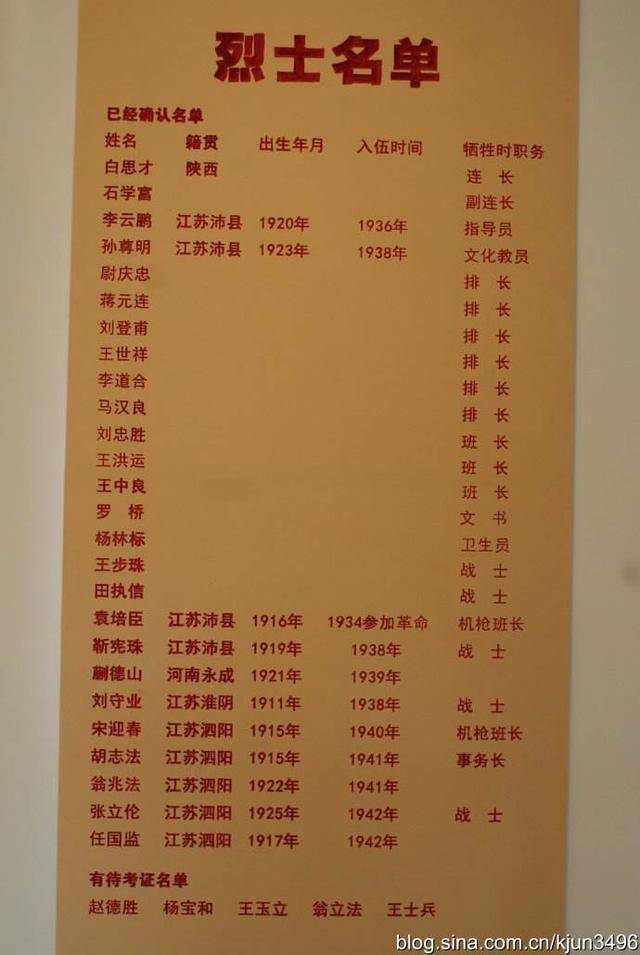 烈士名单
已经确认名单
姓名 籍贯 出生年月 入伍时间 牺牲时职务
白思才 陕西 连 长
石学富 副连长
李云鹏 江苏沛县 1920年 1936年 指导员
孙尊明 江苏沛县 1923年 1938年 文化教员
尉庆忠 排 长
蒋元连 排 长
刘登甫 排 长
王世祥 排 长
李道合 排 长
马汉良 排 长
刘忠胜 班 长
王洪运 班 长
王中良 班 长
罗 桥 文 书
杨林标 卫生员
王步珠 战 士
田执信 战 士
袁培臣 江苏沛县 1916年 1934参加革命 机枪班长
靳宪珠 江苏沛县 1919年 1938年 战 士
蒯德山 河南永成 1921年 1939年
刘守业 江苏淮阴 1911年 1938年 战 士
宋迎春 江苏泗阳 1915年 1940年 机枪班长
胡志法 江苏泗阳 1915年 1941年 事务长
翁兆法 江苏泗阳 1922年 1941年
张立伦 江苏泗阳 1925年 1942年 战 士
任国监 江苏泗阳 1917年 1942年
有待考证名单
赵德胜 杨宝和 王玉立 翁立法 王士兵
blog.sina.com.cn/kjun3496